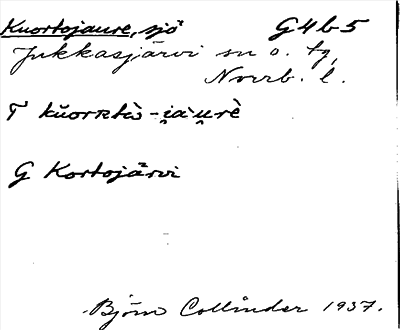 Kuortojaure, sjö G4b5
Jukkasjärvi sn o. tg,
Norrb. l.
T kŭorʀtà̀-i̯a`u̯rè
G Kortojärvi
Björn Collinder 1937.